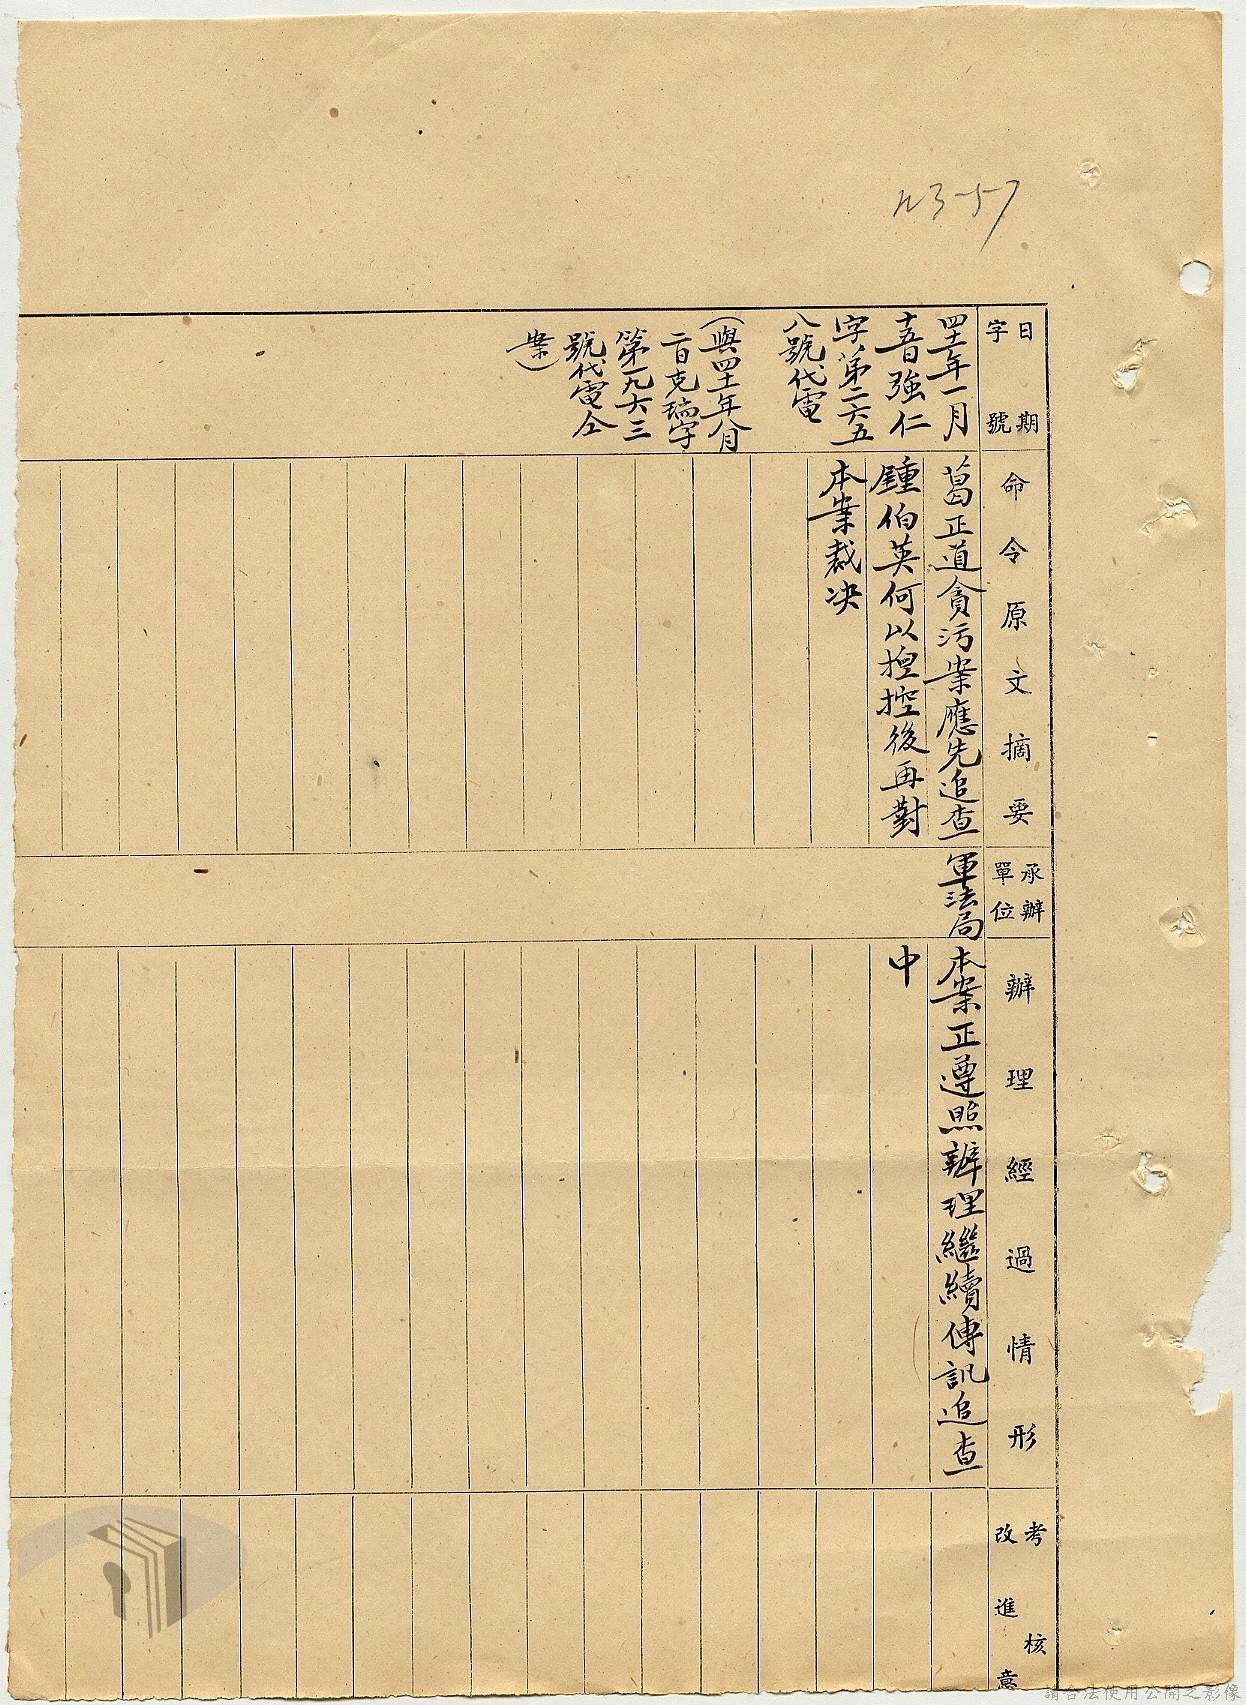 123-57
日期
字號
四十一年一月
十五日強仁
字第二六五
八號代電
(與四十年八月
二日克瑞字
第一九六三
號代電仝
案)
命令原文摘要
葛正道貪污案應先追查
鍾伯英何以捏控後再對
本案裁决
承辦
單位
軍法局
辦理經過情形
本案正遵照辦理繼續傳訊追查
中
考核
改進意
請合法使用公開之影像